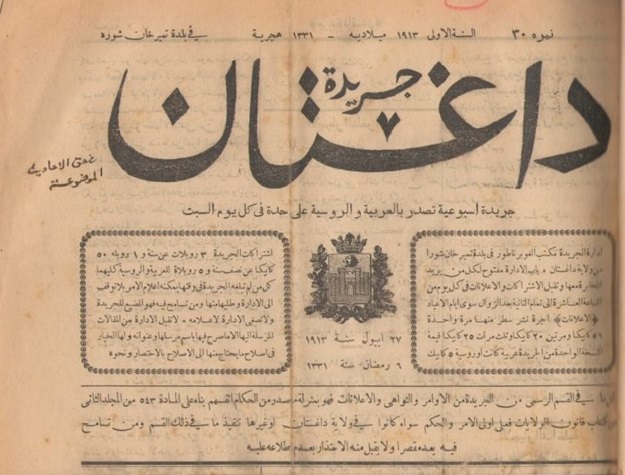 نمره ٣٠ السنة الاولى ١٩١٣ ميلاديه - ١٣٣١ هجرية في بلدة تميرخان شوره
جريدة
داغستان
جريدة اسبوعية تصدر بالعربية والروسية على حدة في كل يوم السبت
ادارة الجريدة مكتب الغوبرناطور في بلدة تميرخان شورا
من ولاية داغستان وباب الادارة مفتوح لكل من يريد
المخابرة معها وتقبل الاشتراكات والاعلانات في كل يوم من
الساعة العاشرة الى تمام الثانية بعد الزوال سوى ايام الاعياد
﴿الاعلانات﴾ اجرة نشر سطر منها مرة واحدة
كاپيكا ومرتين ٢٠ كاپيكا وثلث مرات ٢٥ كاپيكا قيمة
النسخة الواحدة من الجريدة عربية كانت او روسية ٥ كاپيك
٢٧ ايول سنة ١٩١٣
٦ رمضان سنة ١٣٣١
اشتراكات الجريدة ٣ روبلات عن سنة و ١ روبله ٥٠
كاپيكا عن نصف سنة و ٥ روبلاة للعربية والروسية كليهما
كل من لم تبلغه الجريدة في وقتها يمكنه اعلام الامر بلا توقف
الى الادارة وطلبها منها ومن تسامح فيه فهو المضيع للجريدة
ولا تصغى الادارة لاعلامه * لا تقبل الادارة من المقالات
المرسلة اليها الا ما صرح فيها باسم مرسلها وعنوانه ولها الخيار
في اصلاح ما يحتاج منها الى الاصلاح بالاختصار ونحوه
في القسم الرسمى من الجريدة من الاوامر والنواهى والاعلانات فهو بمنزلة ما صدر من الحكام انفسهم بناء على المادة ٥٤٣ من المجلد الثانى
كتاب قانون الولايات فعلى اولى الامر والحكم سواء كانوا في ولاية داغستان او غيرها تنفيذ ما في ذلك القسم ومن تسامح
فيه يعد مقصرا ولا يقبل منه الاعتذار بعدم اطلاعه عليه
الاحاديث
الموضوعة